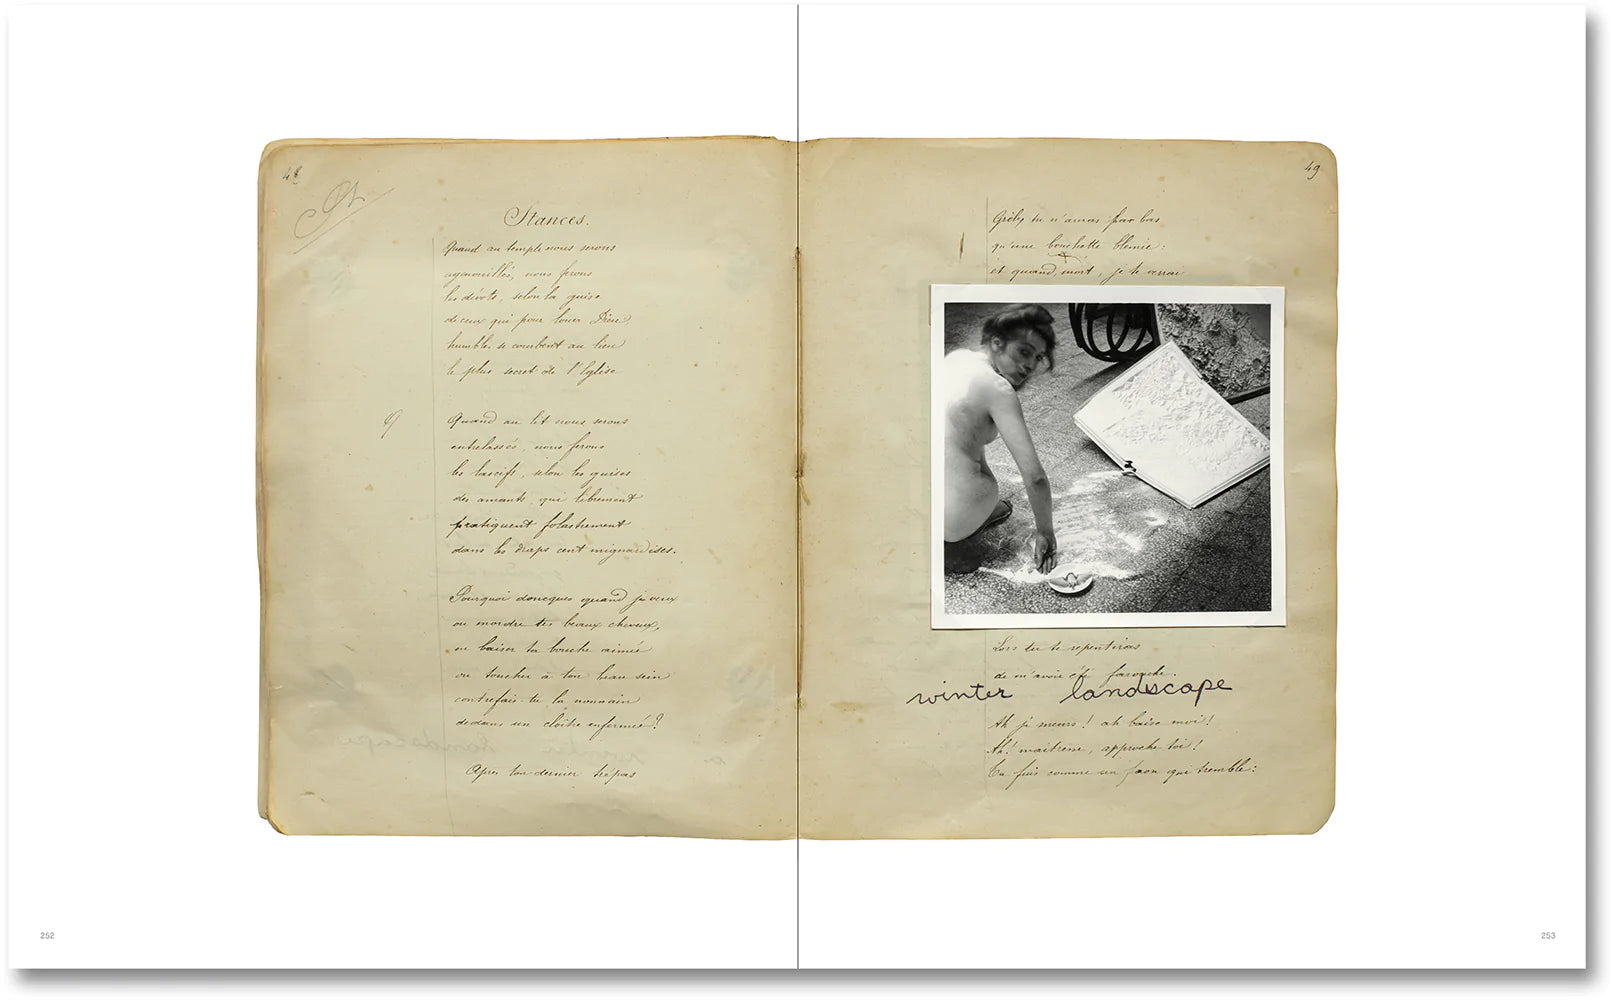 48
Stances.
Quand au temple nous serons
agenouillés, nous ferons
les dévots, selon la guise
de ceux qui pour louer Dieu,
humbles se courbent au lieu
le plus secret de l'Eglise
Quand au lit nous serons
entrelassés, nous ferons
les lascifs, selon les guises
des amants qui librement
pratiquent folastrement
dans les draps cent mignardises.
Pourquoi doncques quand je veux
ou mordre tes beaux cheveux,
ou baiser ta bouche aimée
ou toucher à ton beau sein
contrefais-tu la nonnain
dedans un cloître enfermée?
Après ton dernier trépas
252
49
tu n'auras par bas
qu'une bouchette blemie:
et quand, mort, je te verrai
Lors tu te repentiras
de m'avoir été farouche.
winter landscape
Ah je meurs! ah baise moi!
Ah! maitresse, approche toi!
Tu fuis comme un faon qui tremble:
253